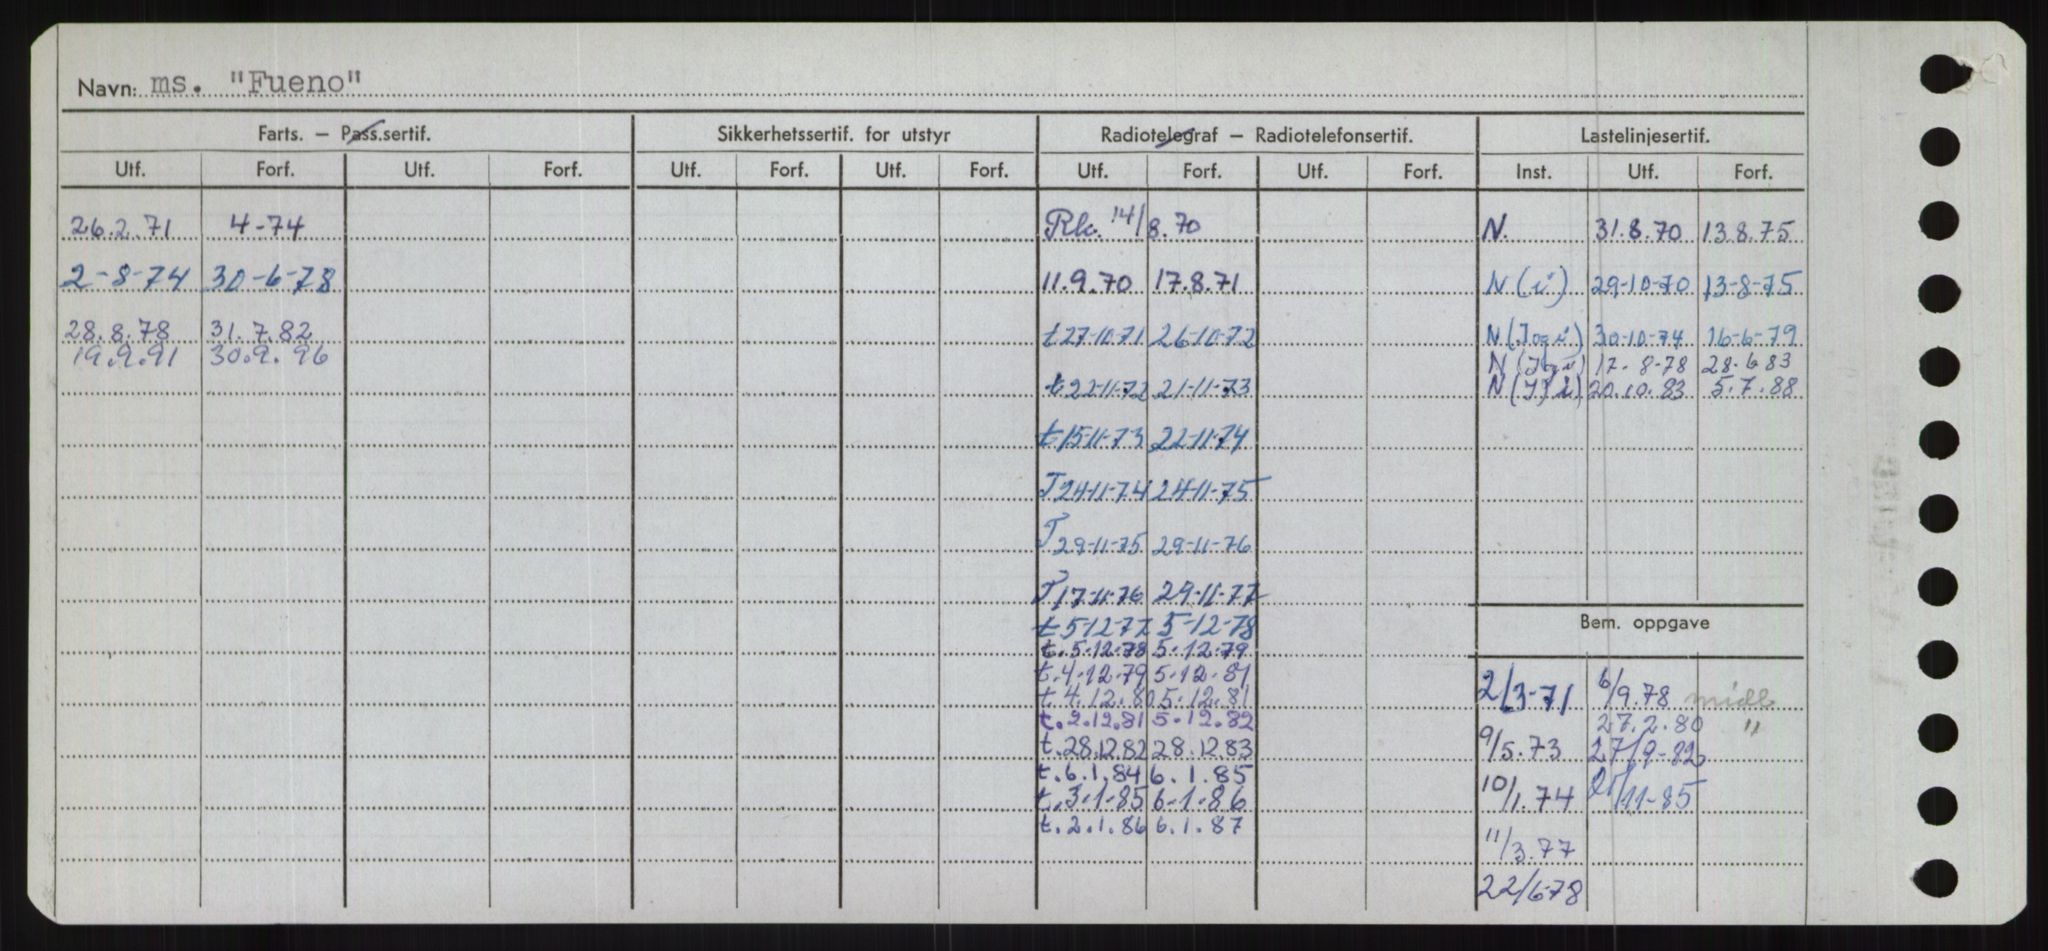 Navn: ms. "Fueno"
Farts. — Pass.sertif. Sikkerhetssertif. for utstyr Radiotelegraf — Radiotelefonsertif. Lastelinjesertif.
Utf. Forf. Utf. Forf. Utf. Forf. Utf. Forf. Utf. Forf. Utf. Forf. Inst. Utf. Forf.
26.2.71 4-74 14/8.70 N. 31.8.70 13.8.75
2-8-74 30-6-78 11.9.70 17.8.71 N (i) 29-10-70 13-8-75
28.8.78 31.7.82 t 27-10-71 26-10-72 N (I og i) 30-10-74 16-6-79
19.9.91 30.9.96 N (I og i) 17.8-78 28.6 83
t 22-11-72 21-11-73 N (I) i) 20.10.83 5.7.88
t 15-11-73 22-11-74
T 24-11-74 24-11-75
T 29-11-75 29-11-76
T 17-11-76 29-11-77
t 5-12-77 5-12-78 Bem. oppgave
t. 5.12.78 5.12.79
t. 4.12.79 5.12.81
t. 4.12.80 5.12.81 2/3-71 6/9.78 midl
t. 2.12.81 5.12.82 27.2.80 "
t. 28.12.82 28.12.83 9/5.73 27/9-82
t. 6.1.84 6.1.85
t. 3-1-85 6-1-86 10/1.74 /11-85
t. 2.1.86 6.1.87
11/3.77
22/6-78